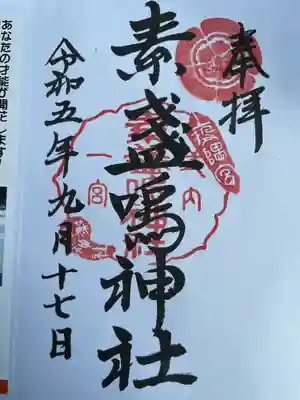 奉拝
素盞嗚神社
令和五年九月十七日
一宮
あなたの才能が開花します!